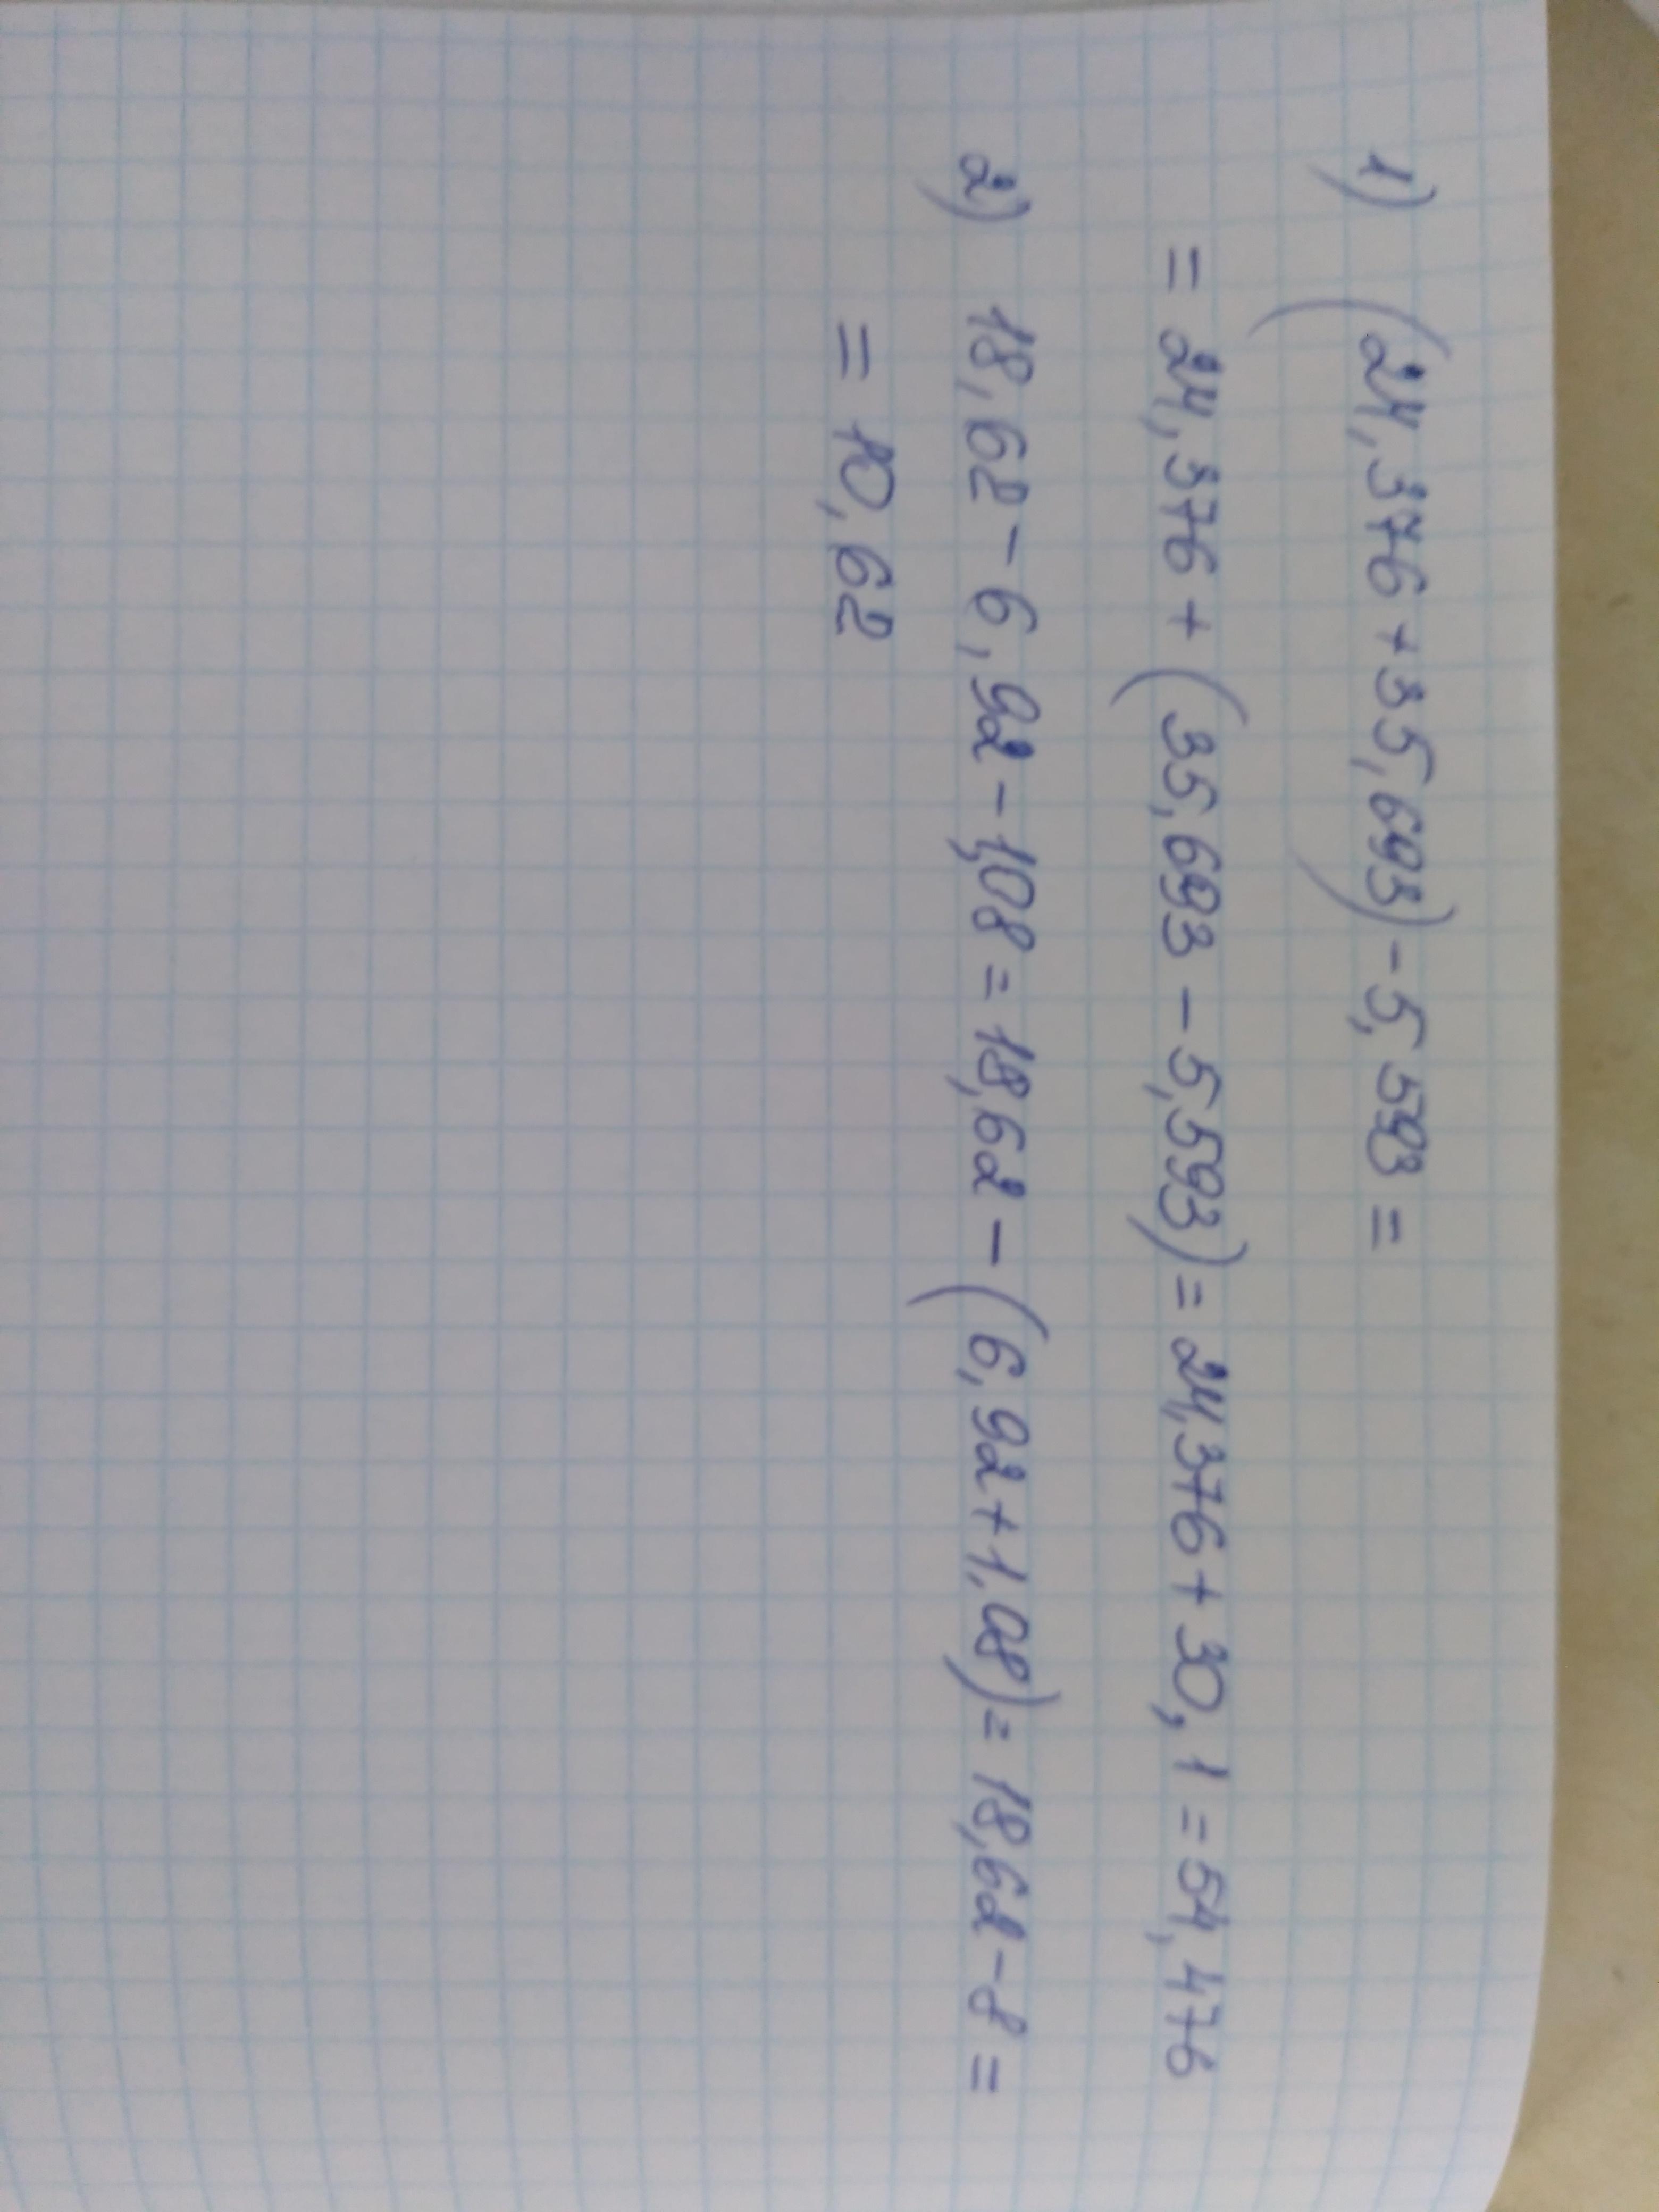 1) (24,376+35,693)-5,593=
= 24,376+(35,693-5,593)=24,376+30,1=54,476
2) 18,62-6,92-1,08=18,62-(6,92+1,08)=18,62-8=
= 10,62